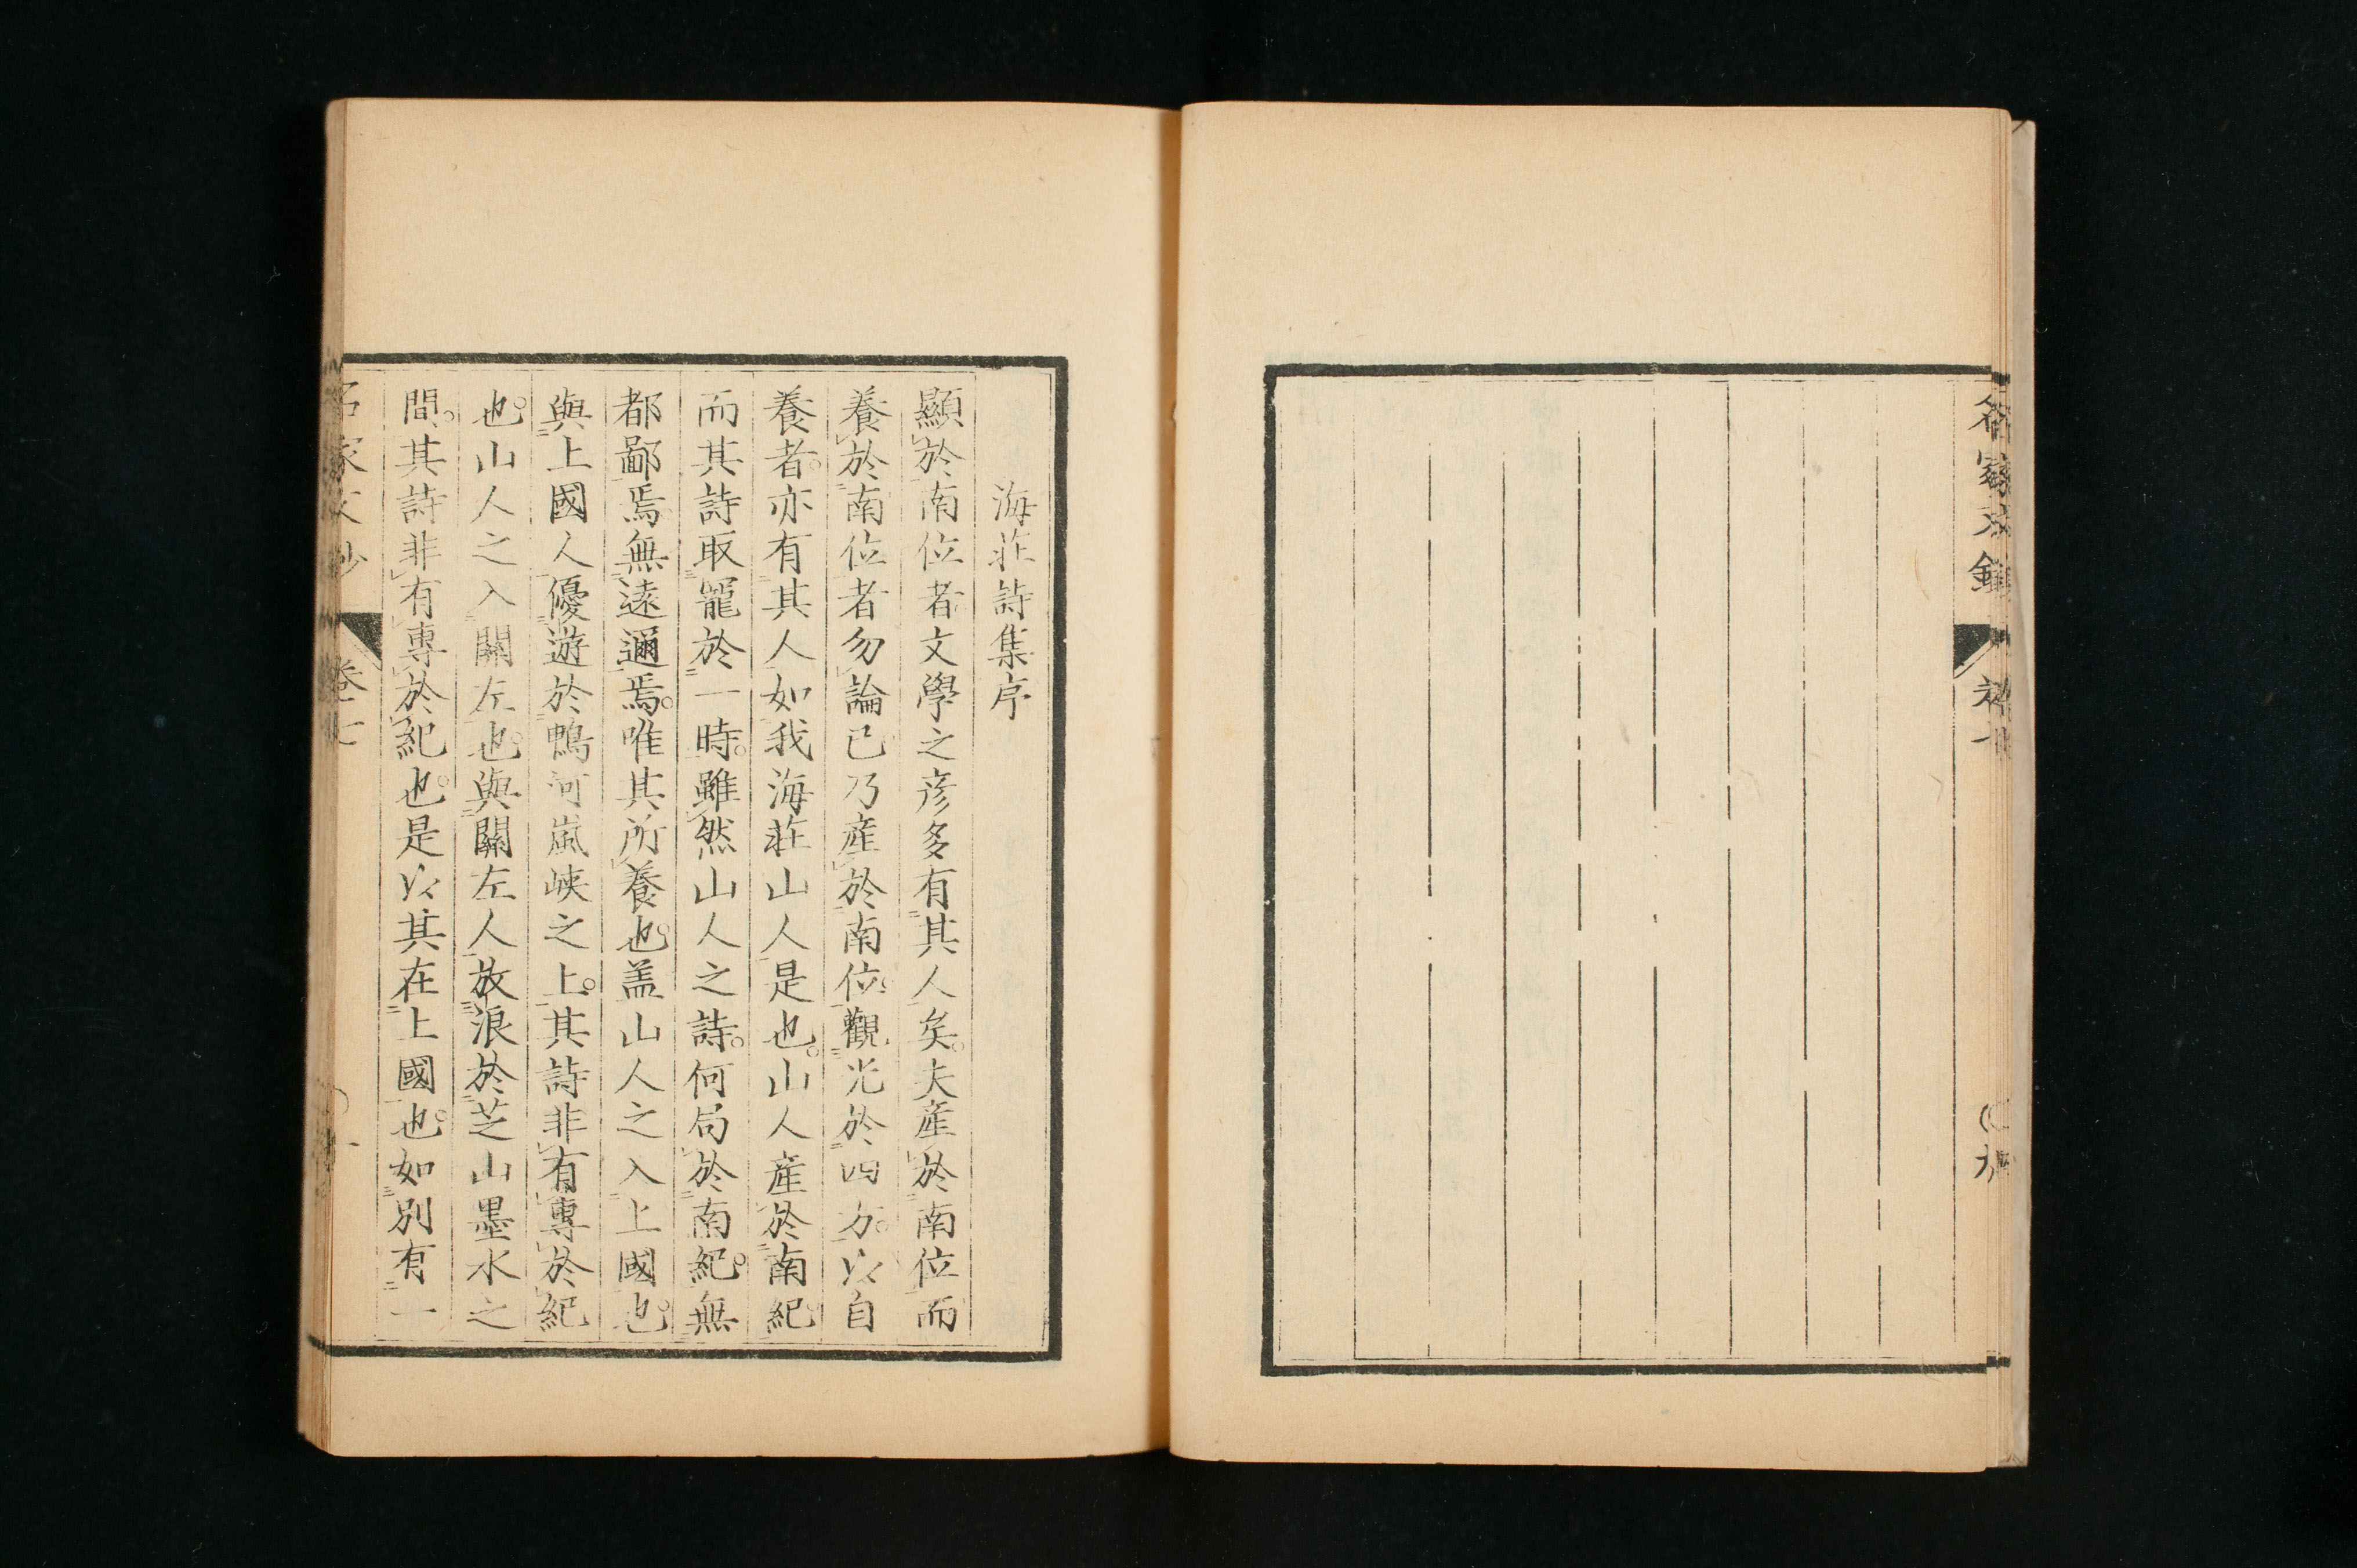 海莊詩集序
顯於南位者文學之彦多有其人矣。夫産於南位而
養於南位者勿論已乃産於南位。觀光於四方。以自
養者。亦有其人如我海莊山人是也。山人産於南紀。
而其詩取寵於一時。雖然山人之詩。何局於南紀。無
都鄙焉。無遠邇焉。唯其所養也。盖山人之入上國也。
與上國人優遊於鴨河嵐峽之上。其詩非有專於紀
也。山人之入關左也。與關左人放浪於芝山墨水之
間。其詩非有專於紀也。是以其在上國也。如別有一
名家文抄
卷七